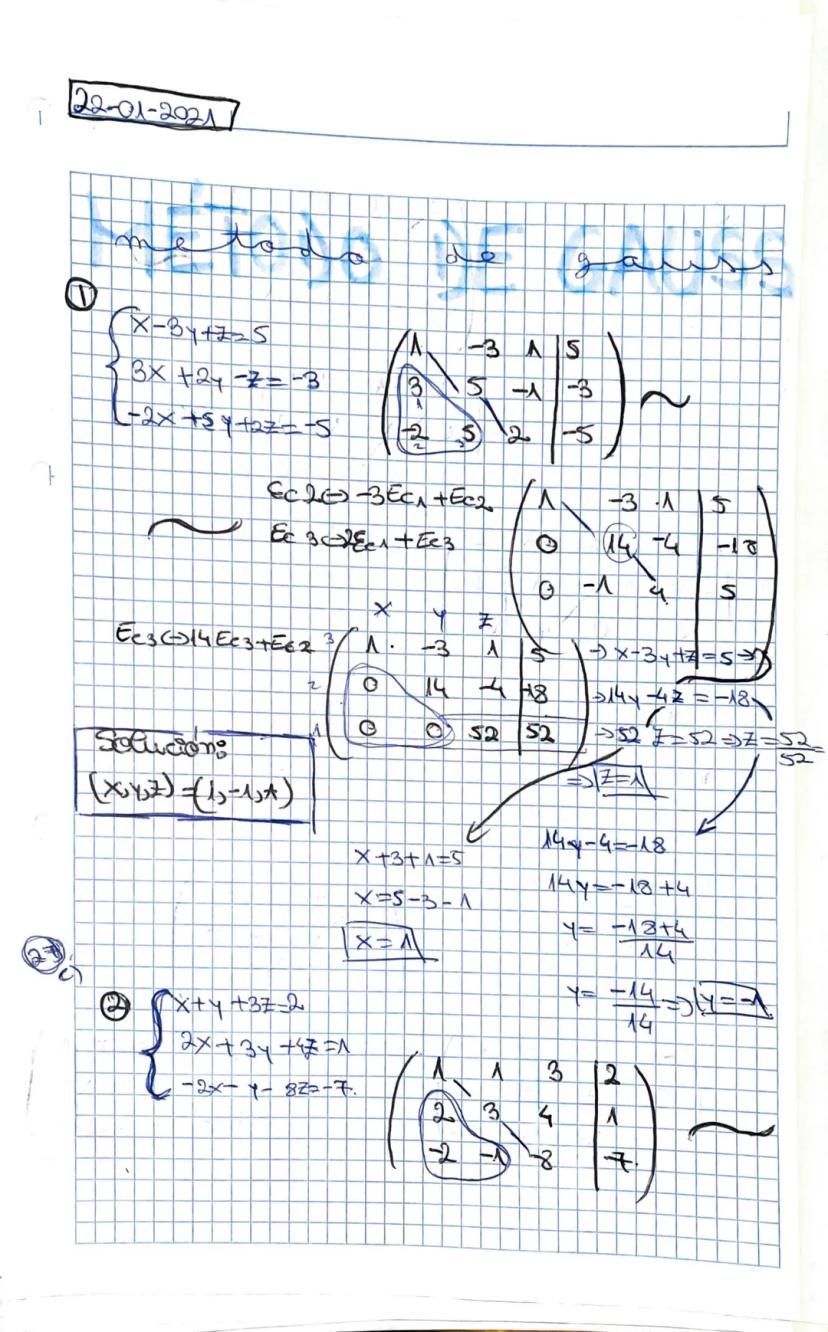 22-01-2021
MÉTODO DE GAUSS
metodo de gauss
①
x-3y+z=5
3x+2y-z=-3
-2x+5y+2z=-5
1 -3 1 | 5
3 5 -1 | -3
-2 5 2 | -5
~
~ Ec2↔-3Ec1+Ec2
Ec3↔2Ec1+Ec3
1 -3 1 | 5
0 14 -4 | -18
0 -1 4 | 5
Ec3↔14Ec3+Ec2
x y z
3 1 -3 1 | 5 → x-3y+z=5 →
2 0 14 -4 | -18 → 14y-4z=-18
1 0 0 52 | 52 → 52z=52 ⇒ z=52/52=
⇒ z=1
Solución:
(x,y,z)=(1,-1,1)
x+3+1=5
x=5-3-1
x=1
14y-4=-18
14y=-18+4
y=-18+4/14
y=-14/14 ⇒ y=-1
27
c)
②
x+y+3z=2
2x+3y+4z=1
-2x-y-8z=-7.
1 1 3 | 2
2 3 4 | 1
-2 -1 -8 | -7.
~